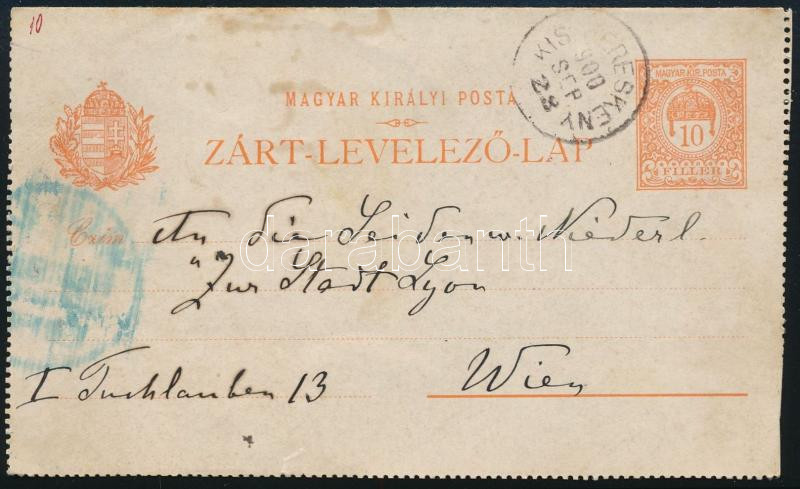 10
MAGYAR KIRÁLYI POSTA
ZÁRT-LEVELEZŐ-LAP
KIS KERESKÉNY
900
SEP
22
MAGYAR KIR. POSTA
10
FILLÉR
Czím
An die Seidenw. Niederl.
"Zur Stadt Lyon
I Tuchlauben 13
Wien
darabanth